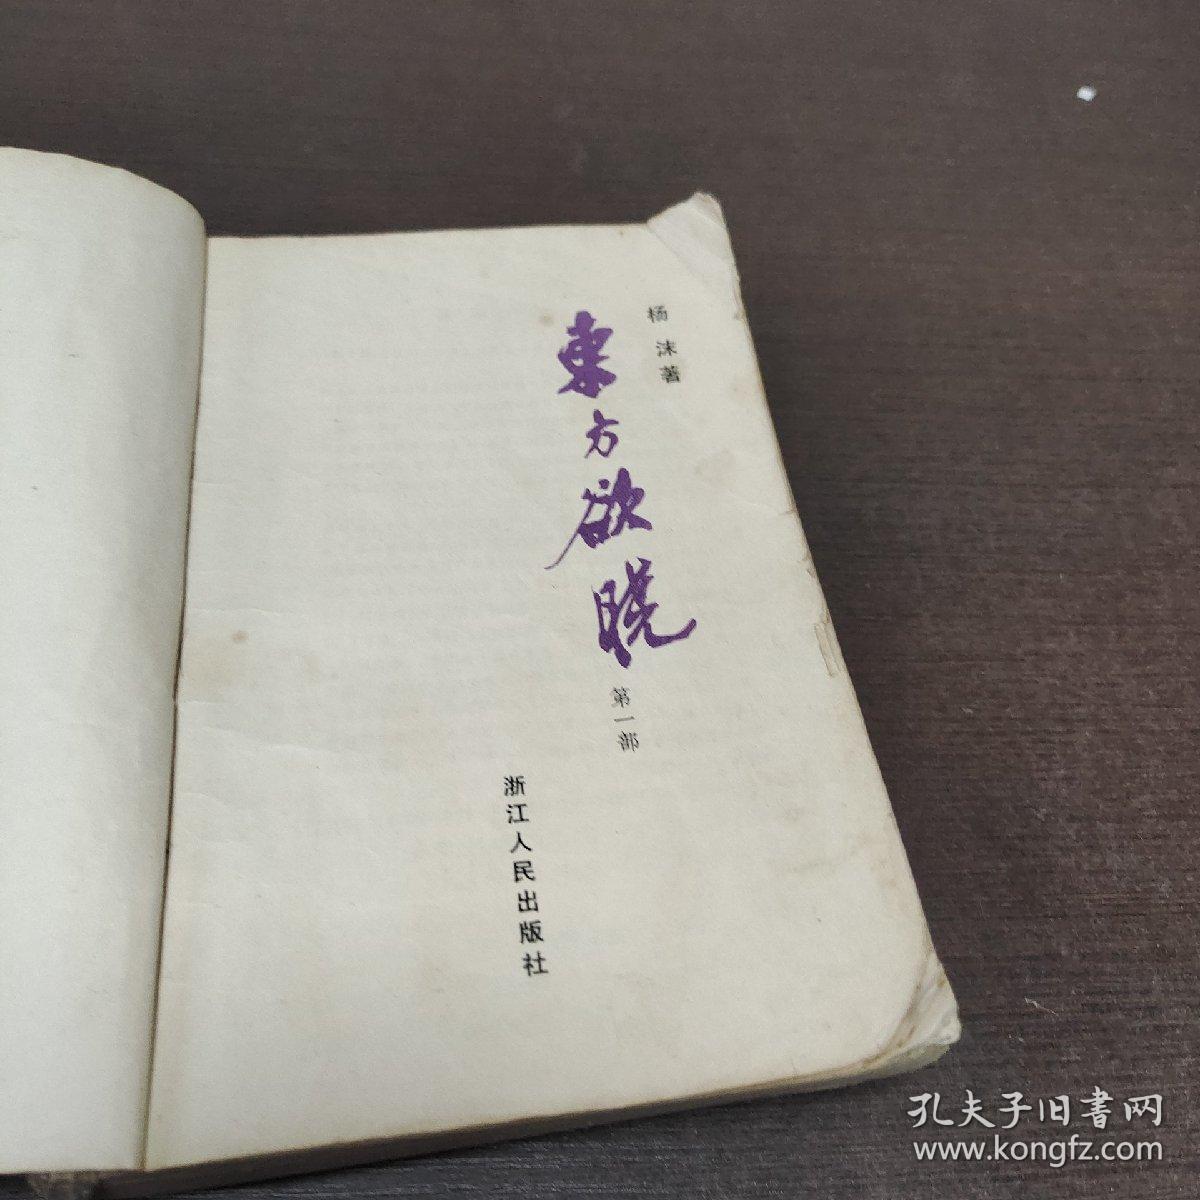 杨沫著
東方欲晓
第一部
浙江人民出版社
孔夫子旧書网
www.kongfz.com